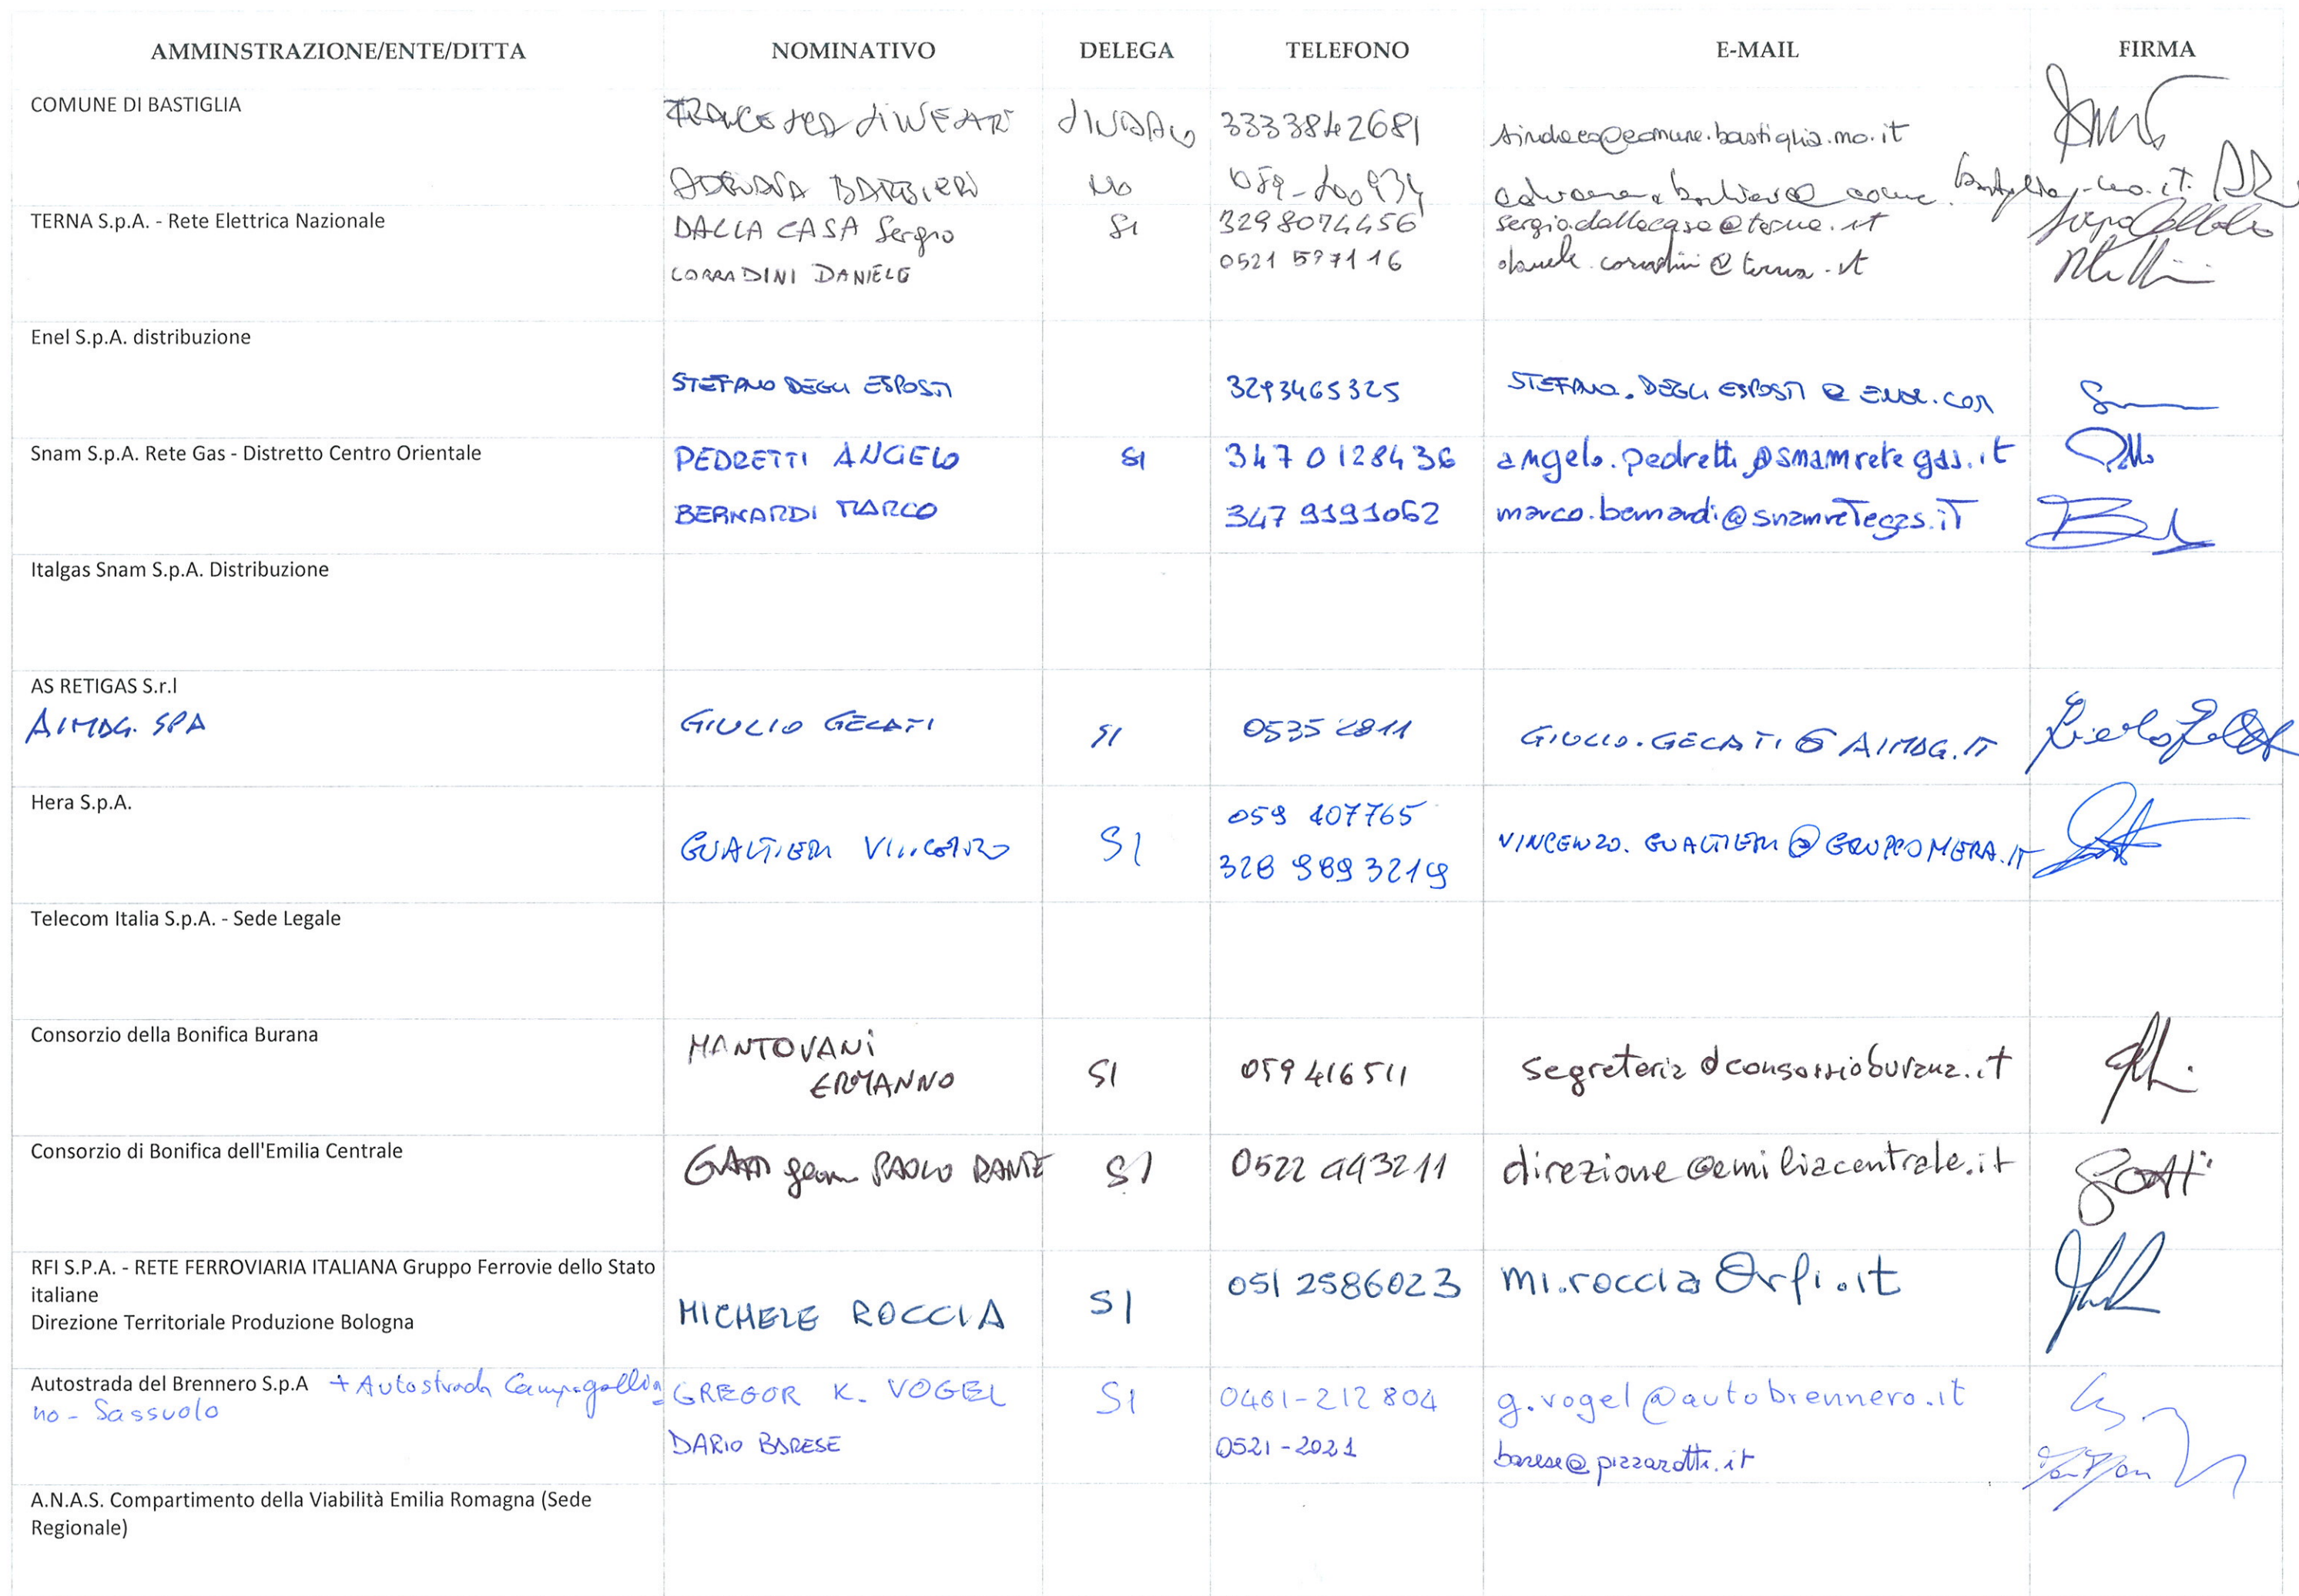 AMMINSTRAZIONE/ENTE/DITTA NOMINATIVO DELEGA TELEFONO E-MAIL FIRMA
COMUNE DI BASTIGLIA
FRANCESCA SILVESTRI SINDACO 3333842681 sindaco@comune.bastiglia.mo.it
BARBIERI NO comune.bastiglia.mo.it
TERNA S.p.A. - Rete Elettrica Nazionale DALLA CASA Sergio SI 3298074456 sergio.dallacasa@terna.it
CORRADINI DANIELE 0521 597116 daniele.corradini@terna.it
Enel S.p.A. distribuzione
STEFANO DEGLI ESPOSTI 3293465325 STEFANO.DEGLI ESPOSTI @ ENEL.COM
Snam S.p.A. Rete Gas - Distretto Centro Orientale PEDRETTI ANGELO SI 347 0128436 angelo.pedretti@snamretegas.it
BERNARDI MARCO 347 9191062 marco.bernardi@snamretegas.it
Italgas Snam S.p.A. Distribuzione
AS RETIGAS S.r.l
AIMAG. SPA GIULIO GELATI SI 0535 2811 GIULIO.GELATI@AIMAG.IT
Hera S.p.A.
059 407765
GUALTIERI VINCENZO SI VINCENZO.GUALTIERI@GRUPPOHERA.IT
328 9893219
Telecom Italia S.p.A. - Sede Legale
Consorzio della Bonifica Burana
MANTOVANI
ERMANNO SI 059 416511 segreteria@consorzioburana.it
Consorzio di Bonifica dell'Emilia Centrale
GATTI geom PAOLO DANTE SI 0522 443211 direzione@emiliacentrale.it
RFI S.P.A. - RETE FERROVIARIA ITALIANA Gruppo Ferrovie dello Stato
italiane
Direzione Territoriale Produzione Bologna
MICHELE ROCCIA SI 051 2586023 mi.roccia@rfi.it
Autostrada del Brennero S.p.A + Autostrada Campogallia
no - Sassuolo
GREGOR K. VOGEL SI 0461-212 804 g.vogel@autobrennero.it
DARIO BARESE 0521-2021 barese@pizzarotti.it
A.N.A.S. Compartimento della Viabilità Emilia Romagna (Sede
Regionale)